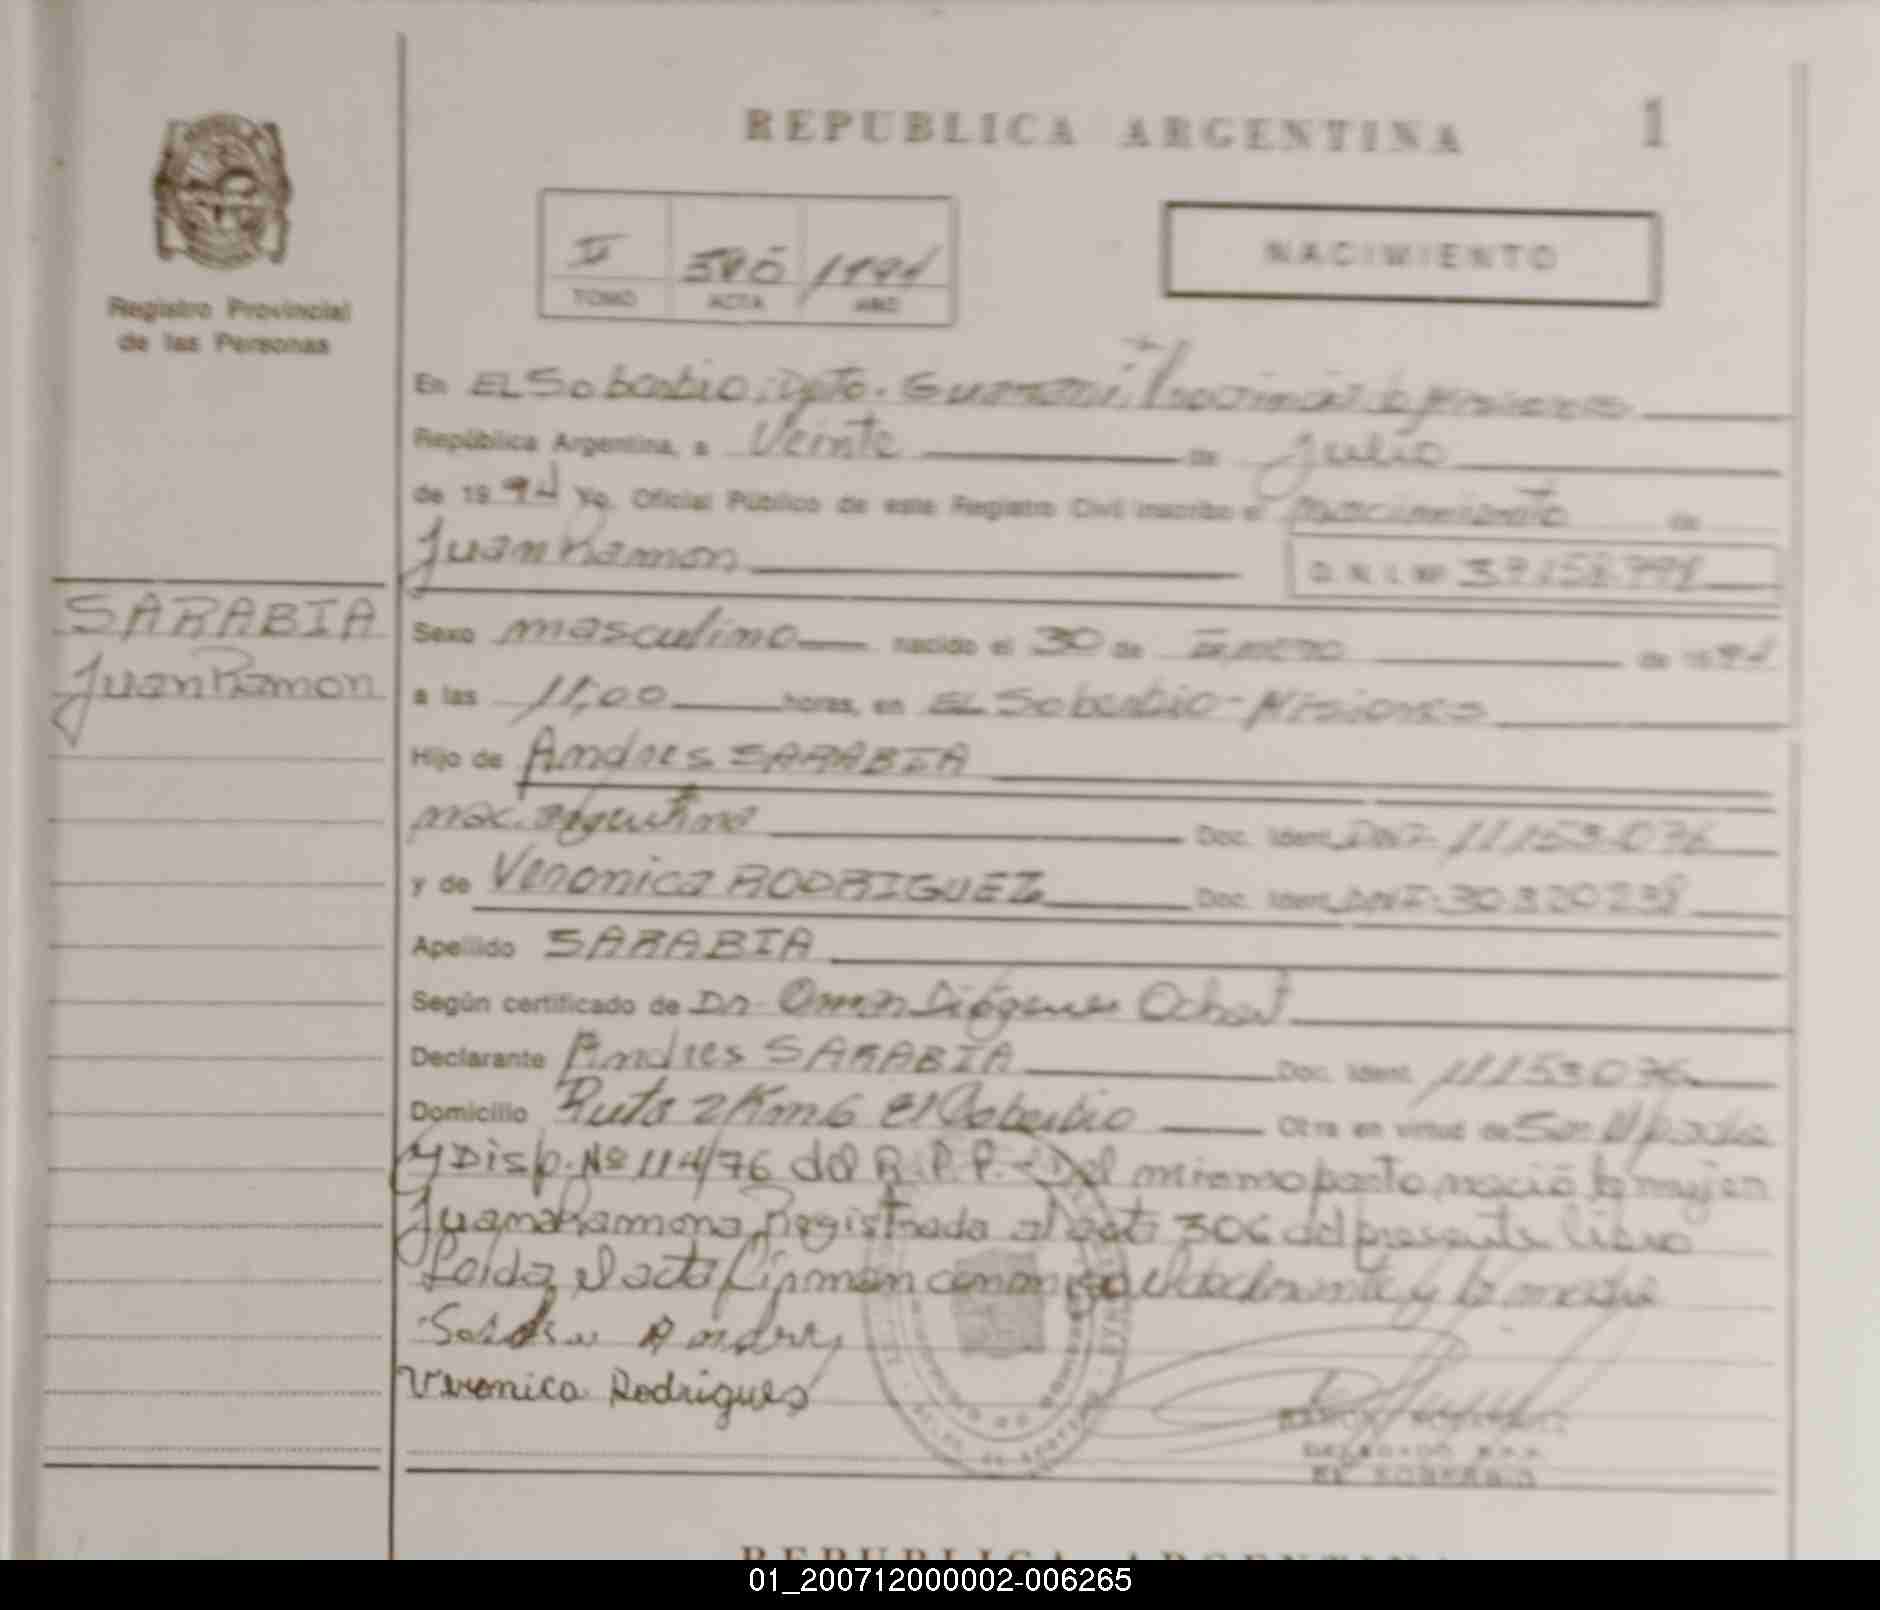 REPUBLICA ARGENTINA
1
II
1994
TOMO
ACTA
AÑO
NACIMIENTO
Registro Provincial
de las Personas
En EL Soberbio, Dpto. Guaraní, Provincia de Misiones
República Argentina, a Veinte de Julio
de 1994 Yo, Oficial Público de este Registro Civil inscribo el nacimiento de
Juan Ramon
D. N. I. Nº
SARABIA
Juan Ramon
Sexo masculino nacido el 30 de Enero de 1994
a las 11,00 horas, en EL Soberbio - Misiones
Hijo de Andres SARABIA
nac. argentina Doc. Ident. DNI. 11153.076
y de Veronica RODRIGUEZ Doc. Ident. DNI. 30320238
Apellido SARABIA
Según certificado de Dr. Omar Diógenes
Declarante Andres SARABIA Doc. Ident. 11153076
Domicilio Ruta 2 Km 6 El Soberbio Obra en virtud de Ser el padre
y Disp. Nº 114/76 del R.P.P. - Del mismo parto nació la mujer
Juana Ramona, Registrada al acta 306 del presente libro
Leida el acta firman conmigo el declarante y la madre
Andres
Veronica Rodrigues
EL SOBERBIO
REPUBLICA ARGENTINA
01_200712000002-006265